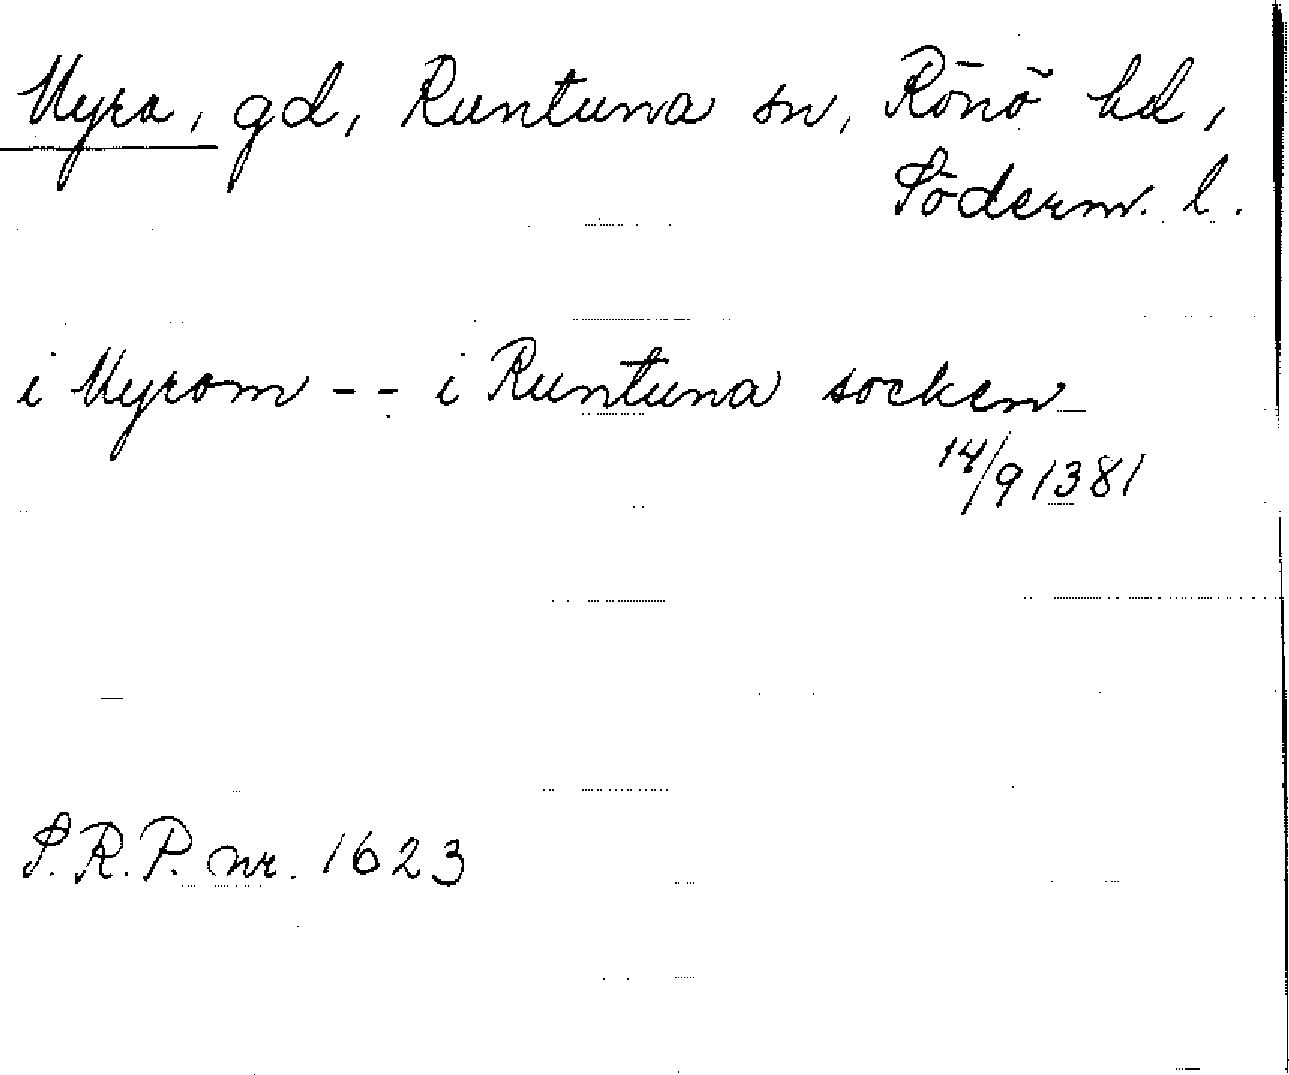 Myra, gd, Runtuna sn, Rönö hd,
Söderm. l.
i Myrom -- i Runtuna socken
14/9 1381
S.R.P. nr. 1623